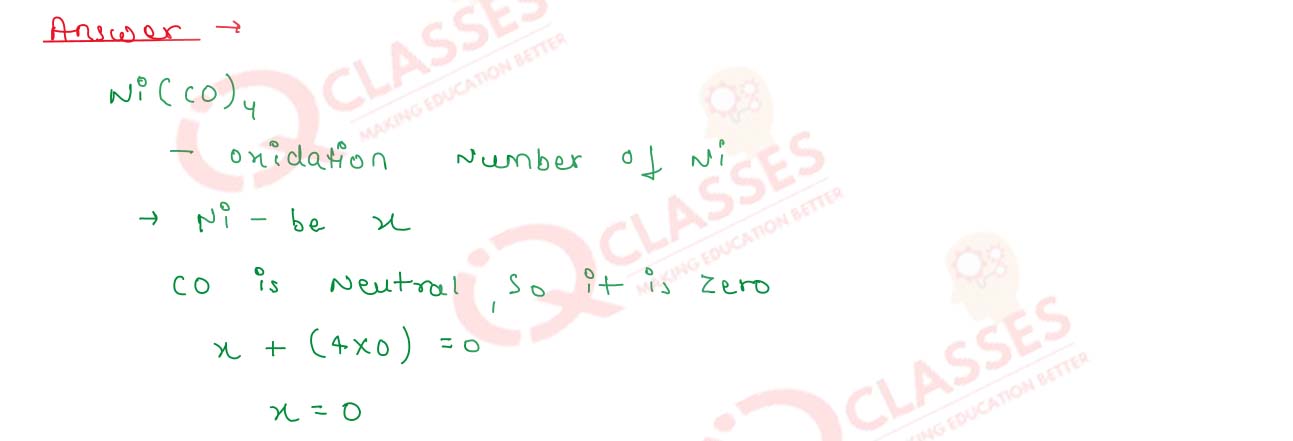 Answer →
Ni(CO)4
- oxidation Number of Ni
→ Ni - be x
CO is Neutral, so it is zero
x + (4×0) = 0
x = 0
iQ CLASSES
MAKING EDUCATION BETTER
iQ CLASSES
MAKING EDUCATION BETTER
iQ CLASSES
MAKING EDUCATION BETTER